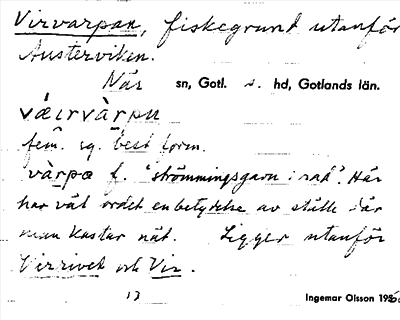 Virvarpan, fiskegrund utanför
Austerviken.
När sn, Gotl. s. hd, Gotlands län.
væirvàrpu
fem. sg. best. form.
vàrpæ f. "strömmingsgarn i rad". Här
har väl ordet en betydelse av ställe där
man kastar nät. Ligger utanför
Virrivet och Vir.
Ingemar Olsson 195